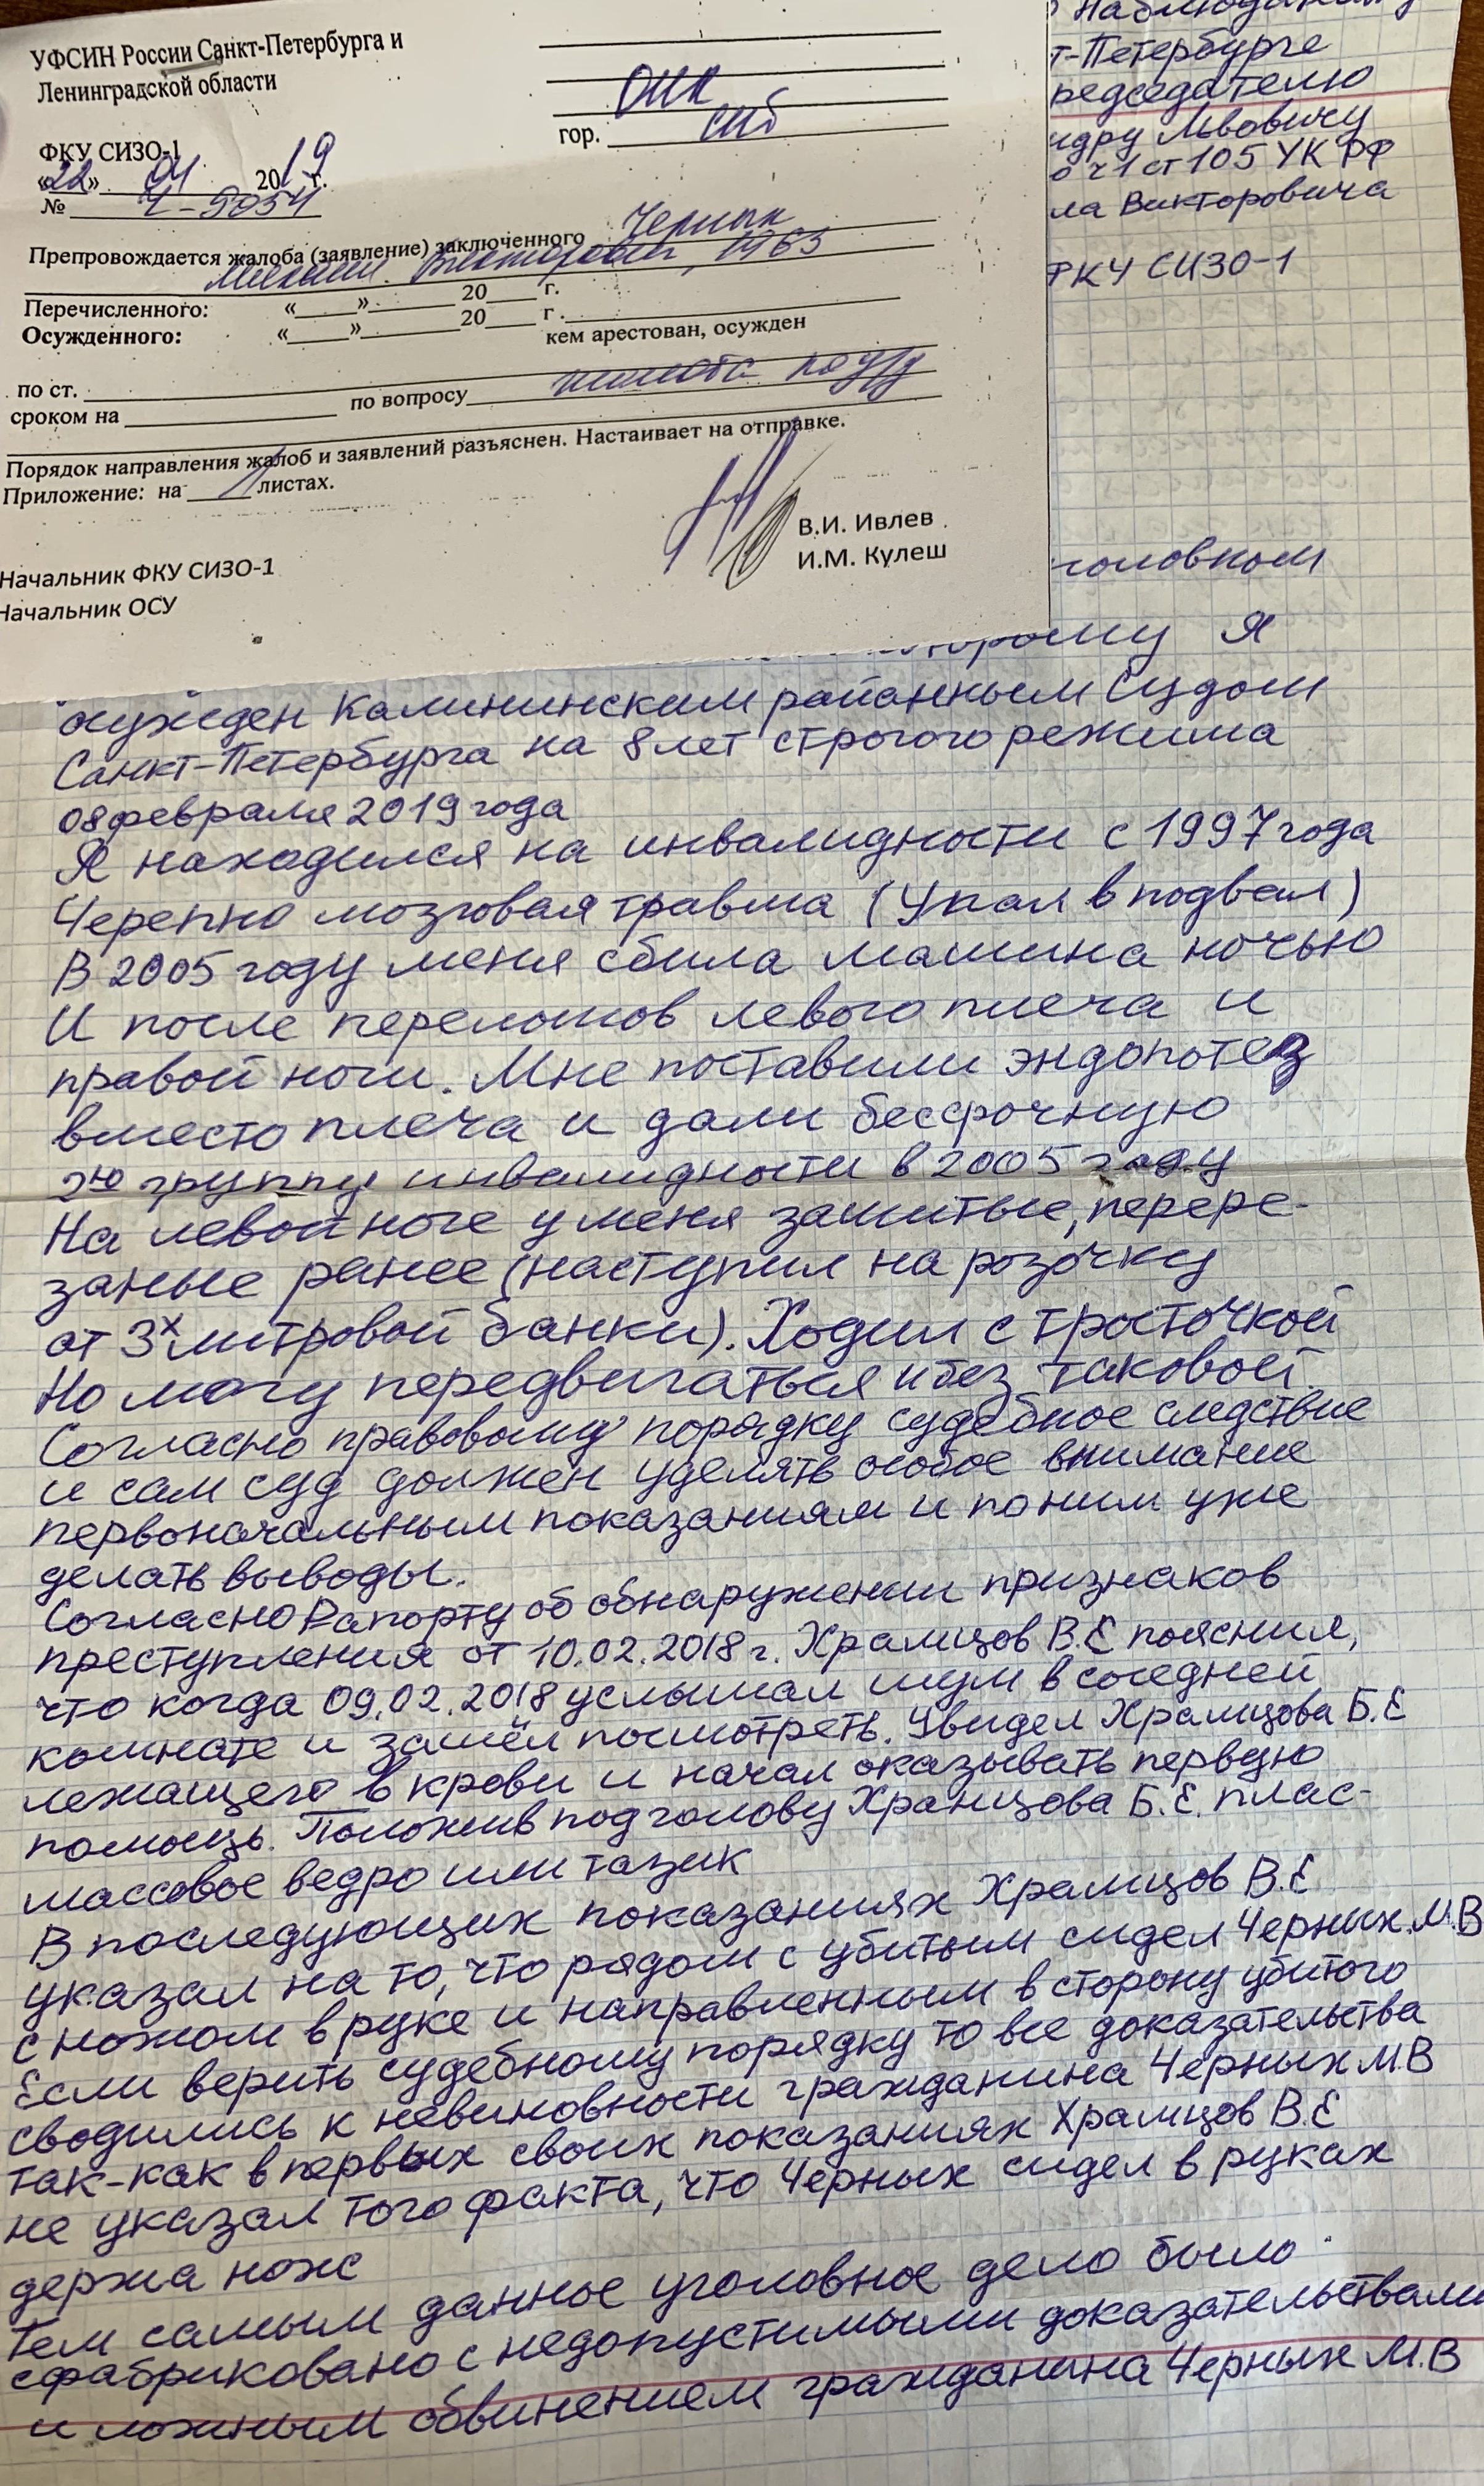 УФСИН России Санкт-Петербурга и
Ленинградской области
ФКУ СИЗО-1
«22» 04 2019 г.
№ Ч-9054
ОНК
гор. СПб
Препровождается жалоба (заявление) заключенного Черных
Михаил Викторович, 1963
Перечисленного: «____»________20____ г.
Осужденного: «____»________20____ г.
кем арестован, осужден
по ст.
сроком на
по вопросу
Порядок направления жалоб и заявлений разъяснен. Настаивает на отправке.
Приложение: на 1 листах.
В.И. Ивлев
И.М. Кулеш
Начальник ФКУ СИЗО-1
Начальник ОСУ
т-Петербурге
редседателю
ндру Львовичу
о ч1 ст 105 УК РФ
ла Викторовича
ФКУ СИЗО-1
головном
Я
осужден Калининским районным Судом
Санкт-Петербурга на 8 лет строгого режима
08 февраля 2019 года
Я находился на инвалидности с 1997 года
Черепно мозговая травма (Упал в подвал)
В 2005 году меня сбила машина ночью
И после переломов левого плеча и
правой ноги. Мне поставили эндопотез
вместо плеча и дали бессрочную
2ю группу инвалидности в 2005 году
На левой ноге у меня зашитые, перере-
заные ранее (наступил на розочку
от 3х литровой банки). Ходил с тросточкой
Но могу передвигаться и без таковой.
Согласно правовому порядку судебное следствие
и сам суд должен уделять особое внимание
первоначальным показаниям и по ним уже
делать выводы.
Согласно Рапорту об обнаружении признаков
преступления от 10.02.2018 г. Храмцов В.Е пояснил,
что когда 09.02.2018 услышал шум в соседней
комнате и зашёл посмотреть. Увидел Храмцова Б.Е
лежащего в крови и начал оказывать первую
помощь. Положив под голову Храмцова Б.Е. плас-
массовое ведро или тазик
В последующих показаниях Храмцов В.Е
указал на то, что рядом с убитым сидел Черных М.В
с ножом в руке и направленным в сторону убитого
Если верить судебному порядку то все доказательства
сводились к невиновности гражданина Черных М.В
так-как в первых своих показаниях Храмцов В.Е
не указал того факта, что Черных сидел в руках
держа нож
Тем самым данное уголовное дело было
сфабриковано с недопустимыми доказательствами
и ложным обвинением гражданина Черных М.В